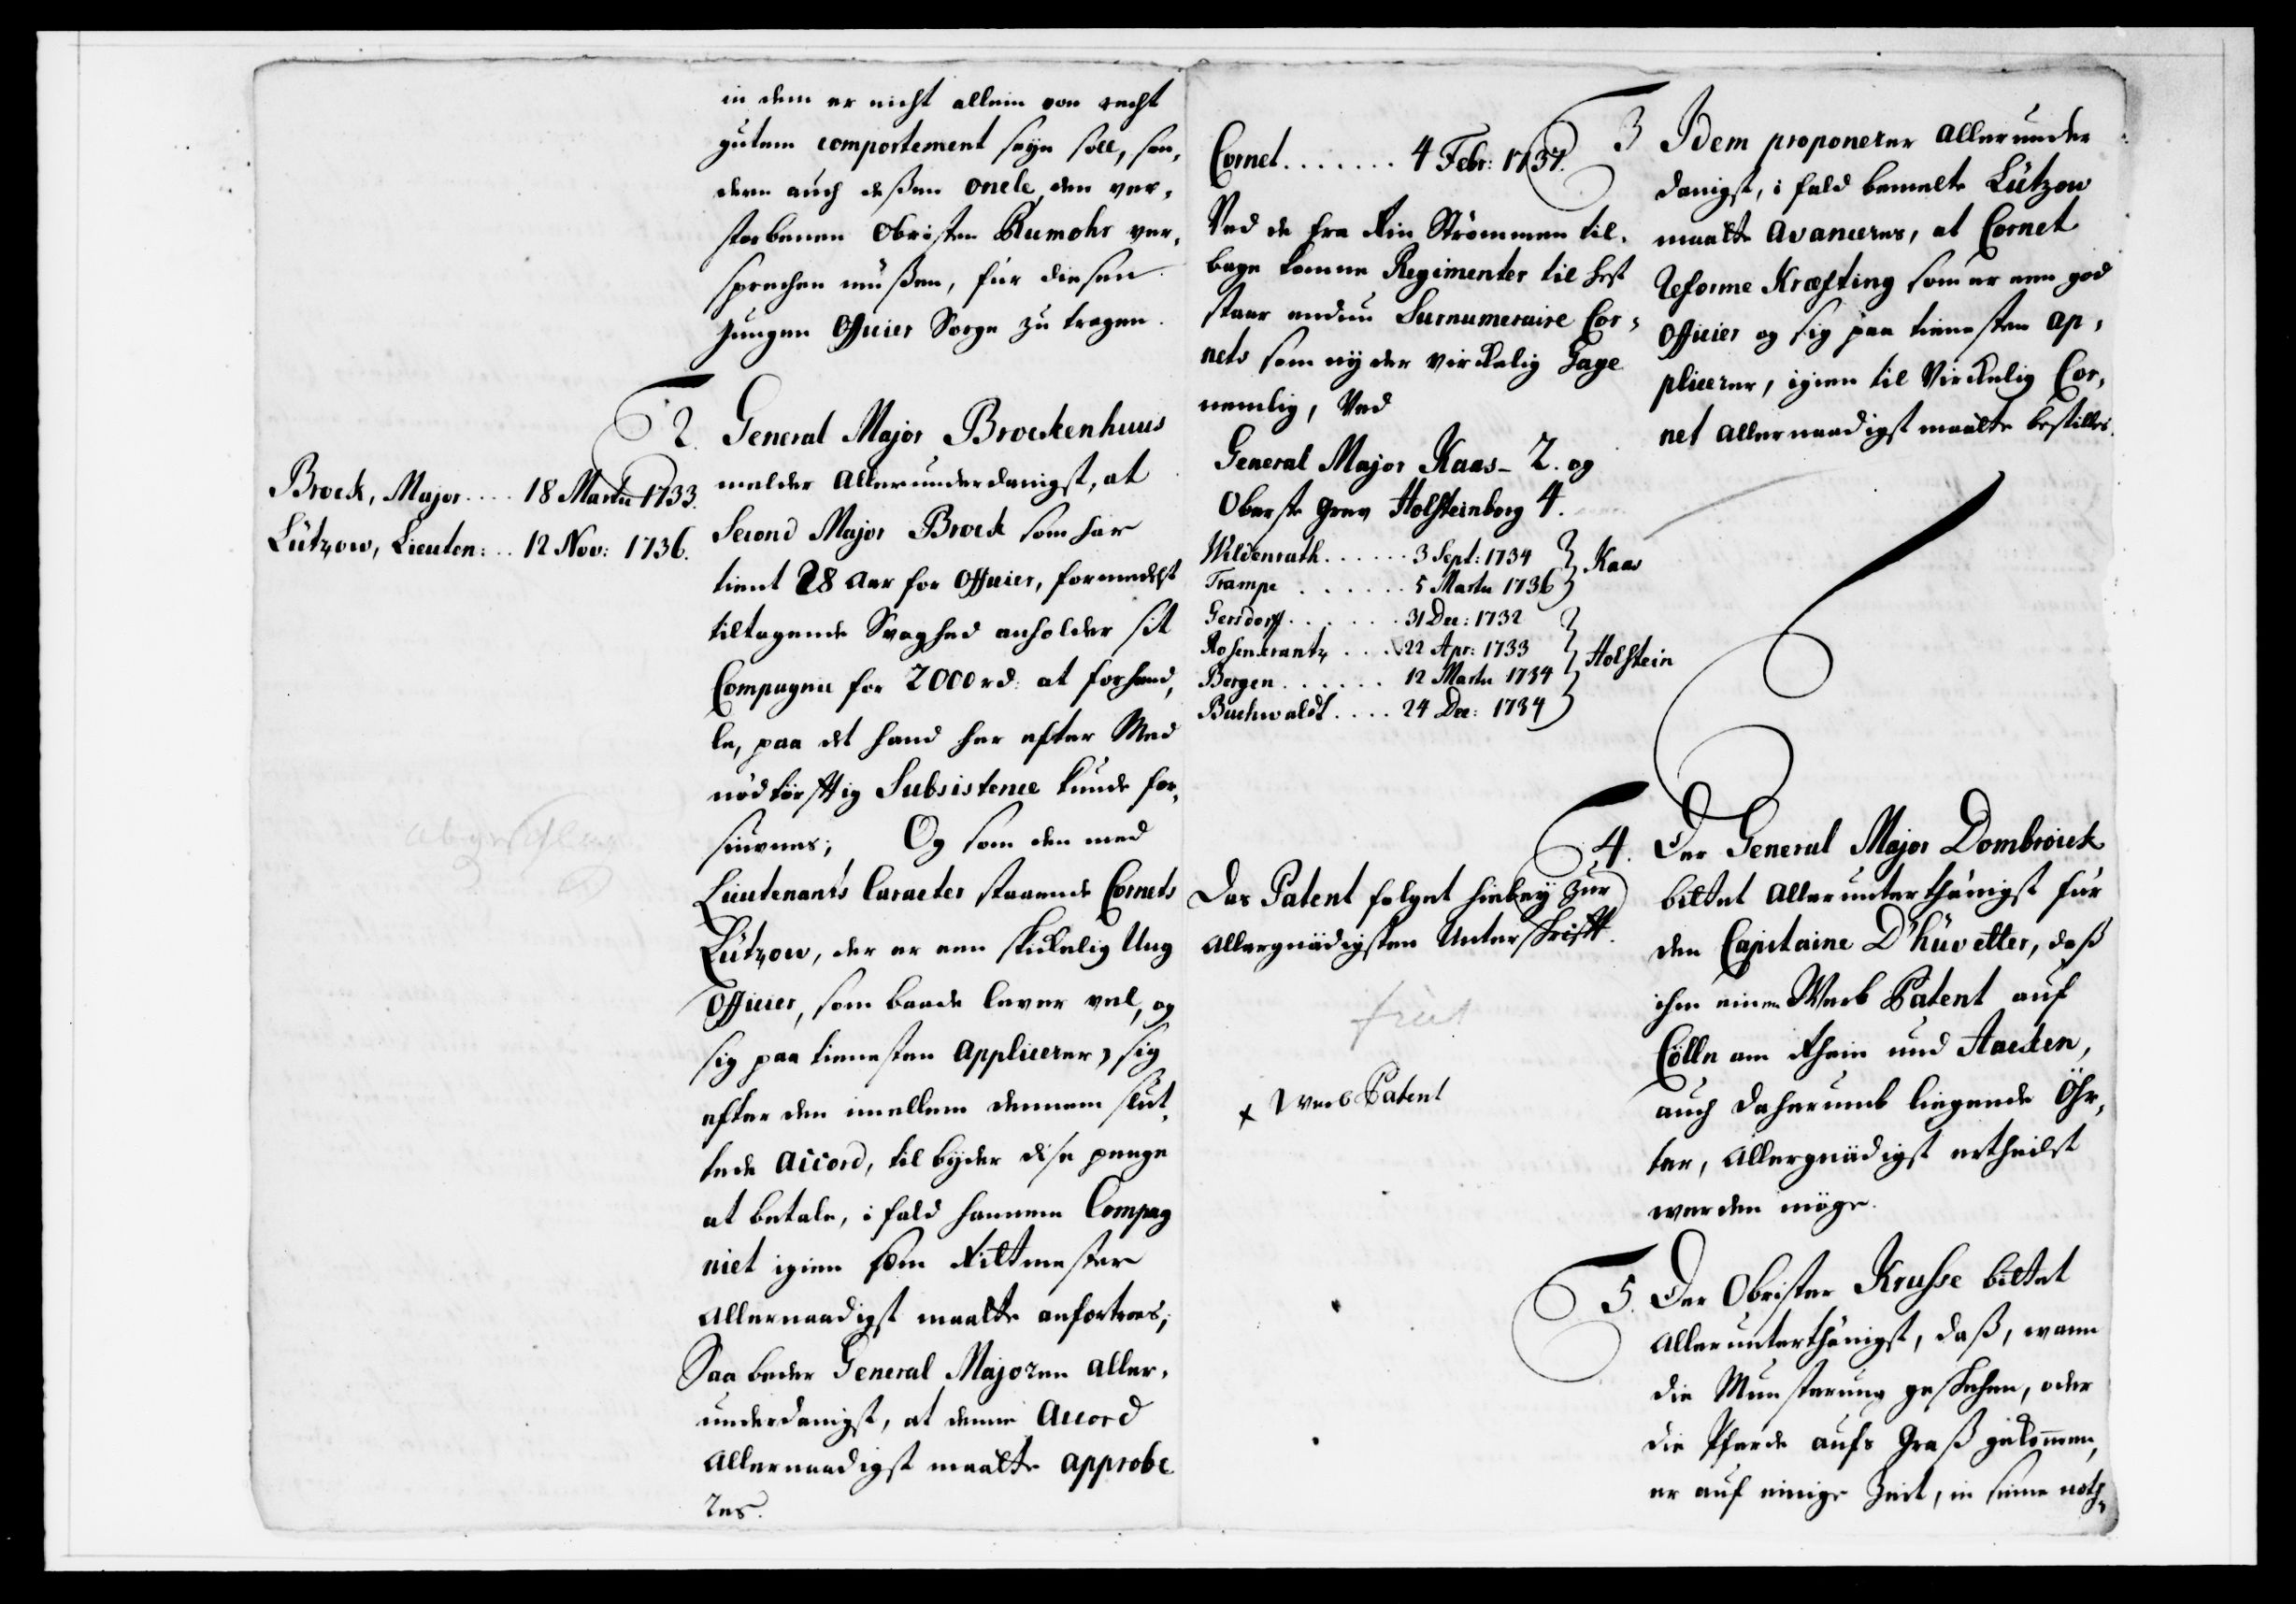 in dem er nicht allein von recht
gutem comportement seyn soll, son,
dern auch deßen oncle, den ver,
storbenen Obristen Rumohr ver,
sprechen müßen, für diesen
jungen Officier Sorge zu tragen.
2. General Major Brockenhuus
melder allerunderdanigst, at
Second Major Brock som har
tient 28 aar for Officier, formedelst
tiltagende Svaghed anholder sit
Compagnie for 2000 rd: at forhand,
le, paa det hand her efter Med
nödtörfftig Subsistence kunde for,
siunes; Og som den med
Lieutenants Caracter staaende Cornets
Lützow, der er een skickelig Ung
Officier, som baade lever vel, og
sig paa tienesten applicerer, sig
efter den imellem dennem slut,
tede accord, tilbyder dise penge
at betale, i fald hannem Compag
niet igien som Rittmester
allernaadigst maatte anfortroes;
Saa beder General Majoren aller,
underdanigst, at denne Accord
allernaadigst maatte approbe
res.
Brock, Major.... 18 Martii 1733.
Lützow, Lieuten:.. 12 Nov: 1736.
abgeschlagen
Cornet....... 4 Febr: 1737.
Ved de fra Rin Strömmen til,
bage komne Regimenter til hest
staar endnu Surnumeraire Cor,
nets som nyder virckelig Gage
nemlig, Ved
General Major Kaas - 2. og
Oberste Grev Holsteinborg 4.
Wildenrath...... 3 Sept: 1734
Trampe....... 5 Martii 1736 } Kaas
Gersdorff...... 31 Dec: 1732
Rosenkrantz... 22 Apr: 1733
Bergen...... 12 Martii 1734 } Holstein
Buchwaldt.... 24 Dec: 1734
Das Patent folget hiebey zur
allergnädigsten Unterschrifft.
fiat
x Werb Patent
3 Idem proponerer allerunder
danigst, i fald bemelte Lützow
maatte avanceres, at Cornet
Reforme Kræfting som er een god
Officier og sig paa tienesten ap,
plicerer, igien til Virckelig Cor,
net allernaadigst maatte bestilles.
4. Der General Major Dombroick
bittet allerunterthänigst für
den Capitaine D'huvetter, daß
ihm einen Werb Patent auf
Cölln am Rhein und Aacken,
auch daherumb liegende Öhr,
ter, allergnädigst ertheilet
werden möge.
5. Der Obrister Krusse bittet
allerunterthänigst, daß, wann
die Munsterung geschehen, oder
die Pferde aufs Graß gekommen,
er auf einige Zeit, in seine noth,